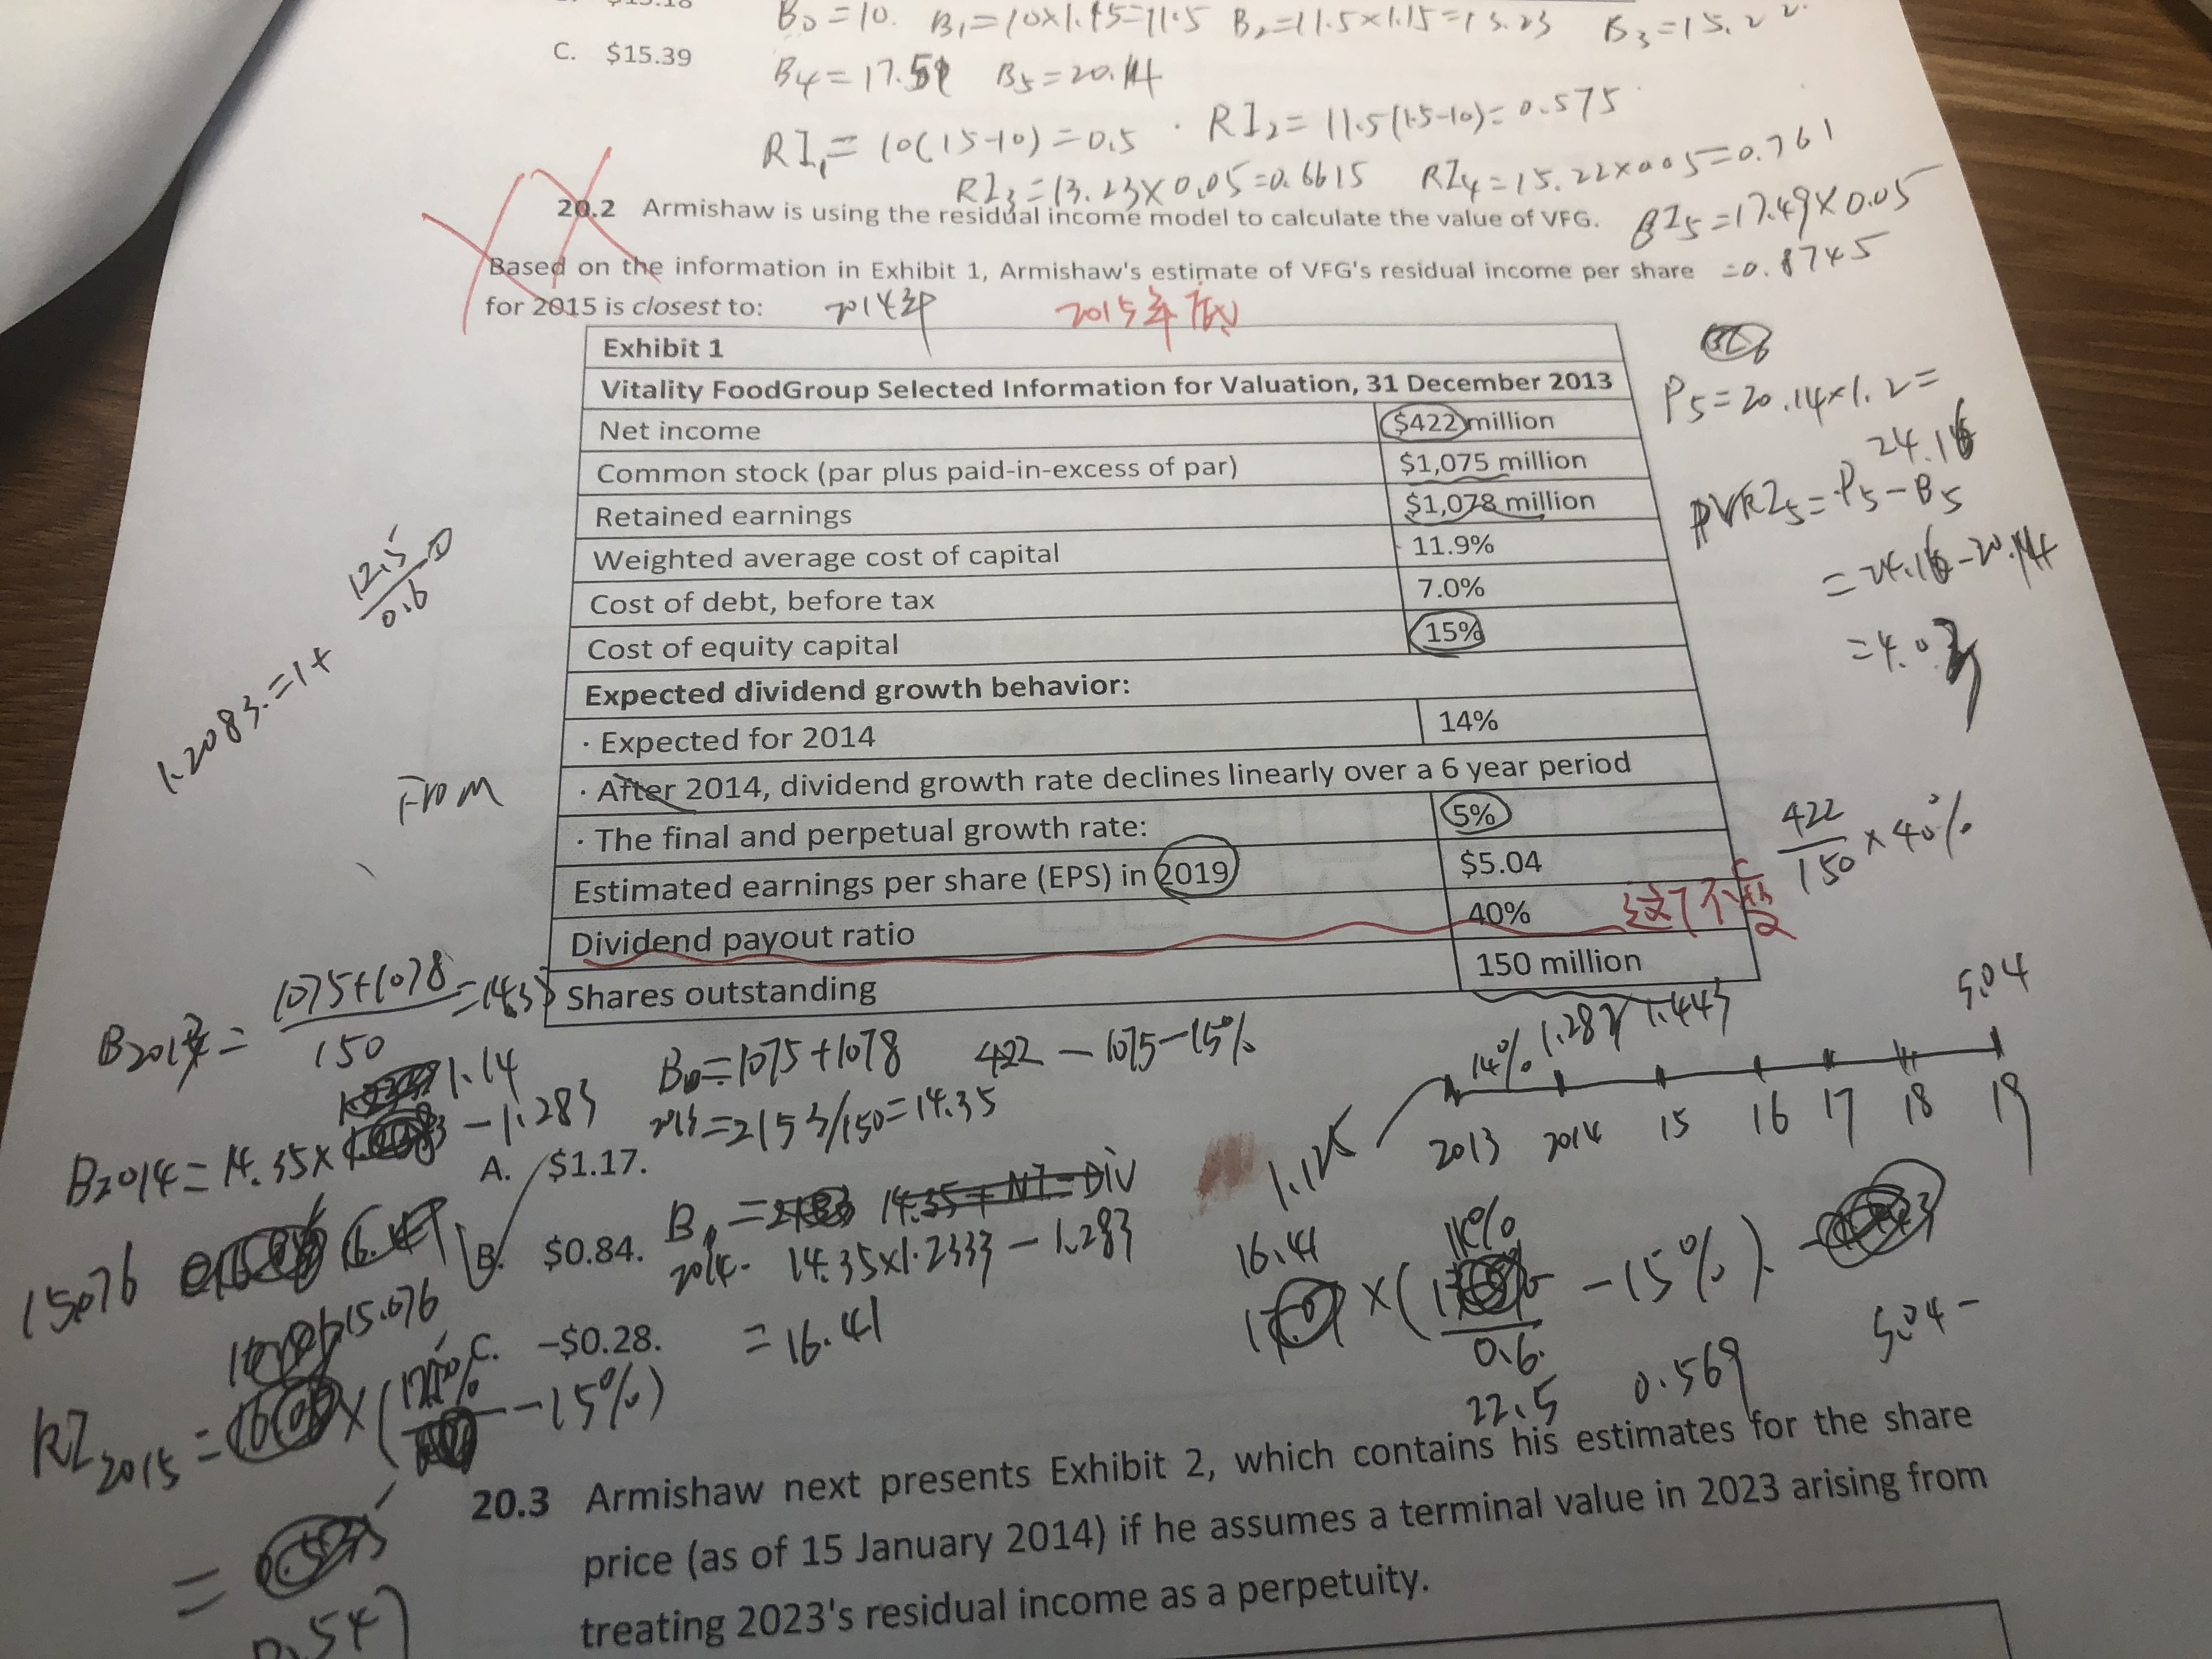 C. $15.39
B₀=10. B₁=10×1.15=11.5 B₂=11.5×1.15=13.23 B₃=15.22
B₄=17.59 B₅=20.14
RI₁=10(15-10)=0.5 · RI₂=11.5(15-10)=0.575
RI₃=13.23×0.05=0.6615 RI₄=15.22×0.05=0.761
20.2 Armishaw is using the residual income model to calculate the value of VFG.
RI₅=17.49×0.05
=0.8745
Based on the information in Exhibit 1, Armishaw's estimate of VFG's residual income per share
for 2015 is closest to:
2014年
2015年底
Exhibit 1
Vitality FoodGroup Selected Information for Valuation, 31 December 2013
Net income $422 million
Common stock (par plus paid-in-excess of par) $1,075 million
Retained earnings $1,078 million
Weighted average cost of capital 11.9%
Cost of debt, before tax 7.0%
Cost of equity capital 15%
Expected dividend growth behavior:
· Expected for 2014 14%
· After 2014, dividend growth rate declines linearly over a 6 year period
· The final and perpetual growth rate: 5%
Estimated earnings per share (EPS) in 2019 $5.04
Dividend payout ratio 40%
Shares outstanding 150 million
P₅=20.14×1.2=
24.16
PVRI₅=P₅-B₅
=24.16-20.14
=4.02
422
150 ×40%
12.5
0.6
1.2083=1+
From
B2013= 1075+1078 =14.35
150
1.14
B2014=14.35× -1.283
15.076
B₀=1075+1078 422-1075-15%
2013=2153/150=14.35
B₁= 14.35+NI-Div
2014- 14.35×1.2333-1.283
=16.41
A. $1.17.
B. $0.84.
C. –$0.28.
15.076
RI2015= ×( -15%)
=
0.547
14% 1.283 1.443 5.04
2013 2014 15 16 17 18 19
1.125
16.41
×( -15%)
0.6
22.5 0.569
5.04-
20.3 Armishaw next presents Exhibit 2, which contains his estimates for the share
price (as of 15 January 2014) if he assumes a terminal value in 2023 arising from
treating 2023's residual income as a perpetuity.